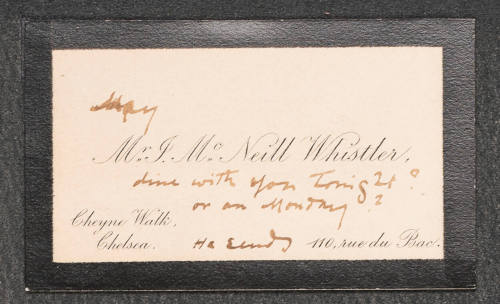 May
Mr. J. Mc. Neill Whistler,
dine with you tonight?
or on Monday?
Cheyne Walk,
Chelsea.
He sends
110, rue du Bac.